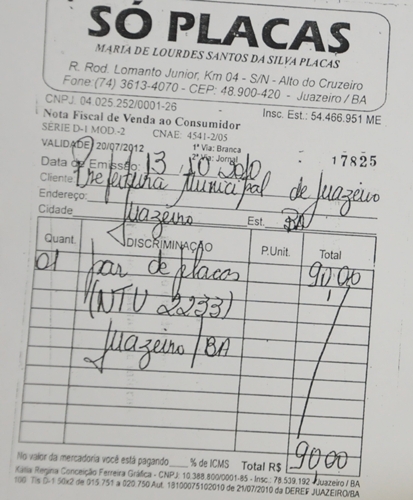 SÓ PLACAS
MARIA DE LOURDES SANTOS DA SILVA PLACAS
R. Rod. Lomanto Junior, Km 04 - S/N - Alto do Cruzeiro
Fone:(74) 3613-4070 - CEP: 48.900-420 - Juazeiro / BA
CNPJ: 04.025.252/0001-26 Insc. Est.: 54.466.951 ME
Nota Fiscal de Venda ao Consumidor
SÉRIE D-1 MOD.-2 CNAE: 4541-2/05
VALIDADE 20/07/2012 1ª Via: Branca
2ª Via: Jornal 17825
Data da Emissão 13 10 2010
Cliente Prefeitura Municipal de Juazeiro
Endereço:
Cidade Juazeiro Est. BA
Quant. DISCRIMINAÇÃO P.Unit. Total
01 par de placas 90,00
(NTU 2233)
Juazeiro/BA
No valor da mercadoria você está pagando ____ % de ICMS Total R$ 90,00
Kátia Regina Conceição Ferreira Gráfica - CNPJ: 10.388.800/0001-85 - Insc.: 78.539.192 Juazeiro / BA
100 Tls D-1 50x2 de 015.751 a 020.750 Aut. 18100075102010 de 21/07/2010 da DEREF JUAZEIRO/BA